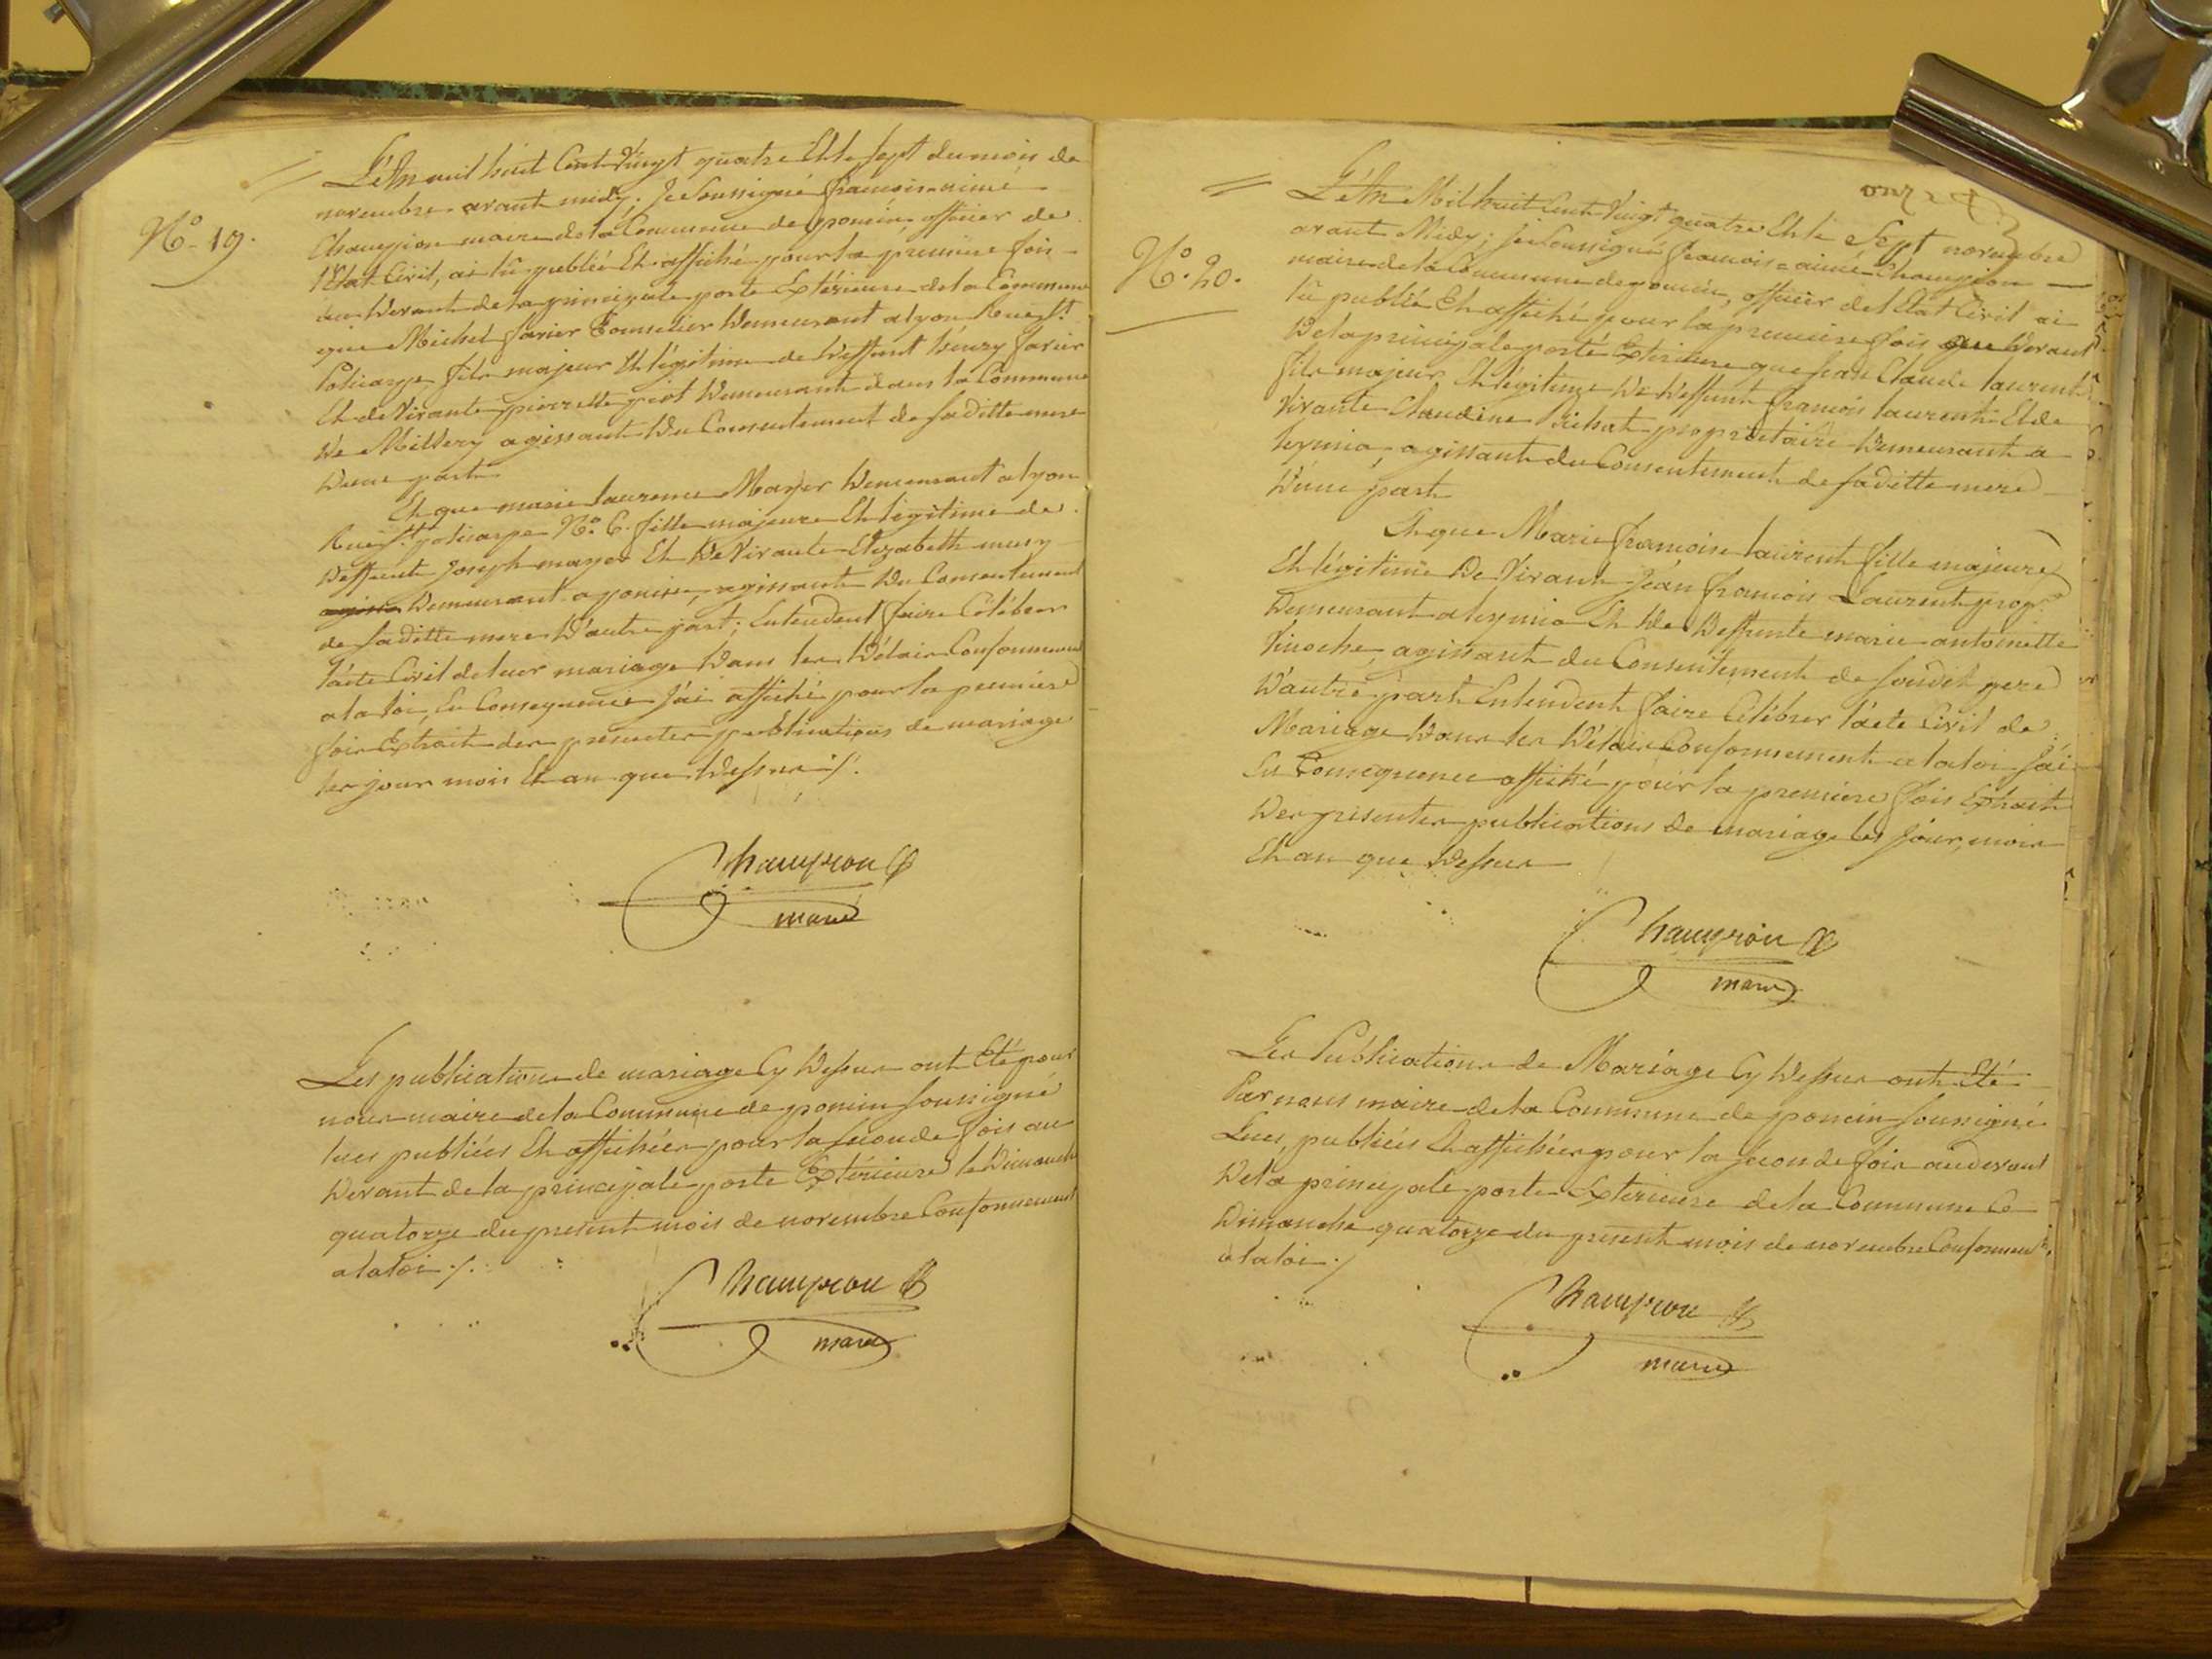 N.° 19.
L'An mil huit Cent Vingt quatre Et le sept du mois de
novembre avant midy. Je Soussigné françois aimé
Champion maire de la Commune de poncin, officier de
l'Etat Civil, ai lû publié Et affiché pour la premiere fois
au Devant de la principale porte Extérieure de la Commune
que Michel farier Tonnelier Demeurant a lyon Rue S.t
Policarpe, fils majeur Et légitime de Deffunt henry farier
Et de Vivante pierrette piot Demeurante dans la Commune
De Millery agissant Du Consentement de saditte mere
D'une part
Et que marie laurence Mayer Demeurant a lyon
Rue S.t policarpe N.° 6. fille majeure Et légitime de
Deffunt Joseph mayer Et De Vivante Elizabeth
Demeurant a poncin, agissant Du Consentement
de saditte mere D'autre part; Entendent faire Célébrer
l'acte Civil de leur mariage Dans les Délais Conformement
a la loi, En Consequence J'ai affiché pour la premiere
fois Extrait des presentes publications de mariage
les jour mois Et an que Dessus ./.
Champion
maire
Les publications de mariage Cy Dessus ont Eté par
nous maire de la Commune de poncin soussigné
lues publiées Et affichées pour la seconde fois au
Devant de la principale porte Extérieure le Dimanche
quatorze du present mois de novembre Conformement
a la loi ./.
Champion
maire
N.° 20.
L'An Mil huit Cent Vingt quatre Et le Sept novembre
avant Midy; je Soussigné françois aimé Champion
maire de la Commune de poncin, officier de l'Etat Civil ai
lû publié Et affiché pour la premiere fois au Devant
De la principale porte Exterieure que jean Claude laurent
fils majeur Et légitime De Deffunt françois laurent Et de
Vivante Claudine Bichat propriétaire Demeurant a
leymia, agissant du Consentement de saditte mere
D'une part
Et que Marie françoise laurent fille majeure
Et légitime De Vivant Jean françois Laurent prop.re
Demeurant a leymia Et De Deffunte marie antoinette
Vinoche, agissant du Consentement de soudit pere
D'autre part Entendent faire Célébrer l'acte Civil de
Mariage Dans les Délais Conformement a la loi J'ai
En Consequence affiché pour la premiere fois Extrait
Des presentes publications de mariage les jour, mois
Et an que Dessus
Champion
maire
Les Publications de Mariage Cy Dessus ont Eté
Par nous maire de la Commune de poncin soussigné
Lues, publiées Et affichées pour la seconde fois au devant
De la principale porte Exterieure de la Commune Ce
Dimanche quatorze du present mois de novembre Conformem.t
a la loi ./
Champion
maire